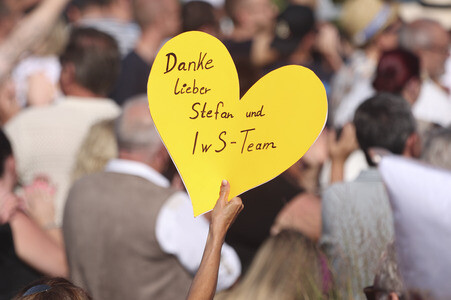 Danke
lieber
Stefan und
IwS-Team